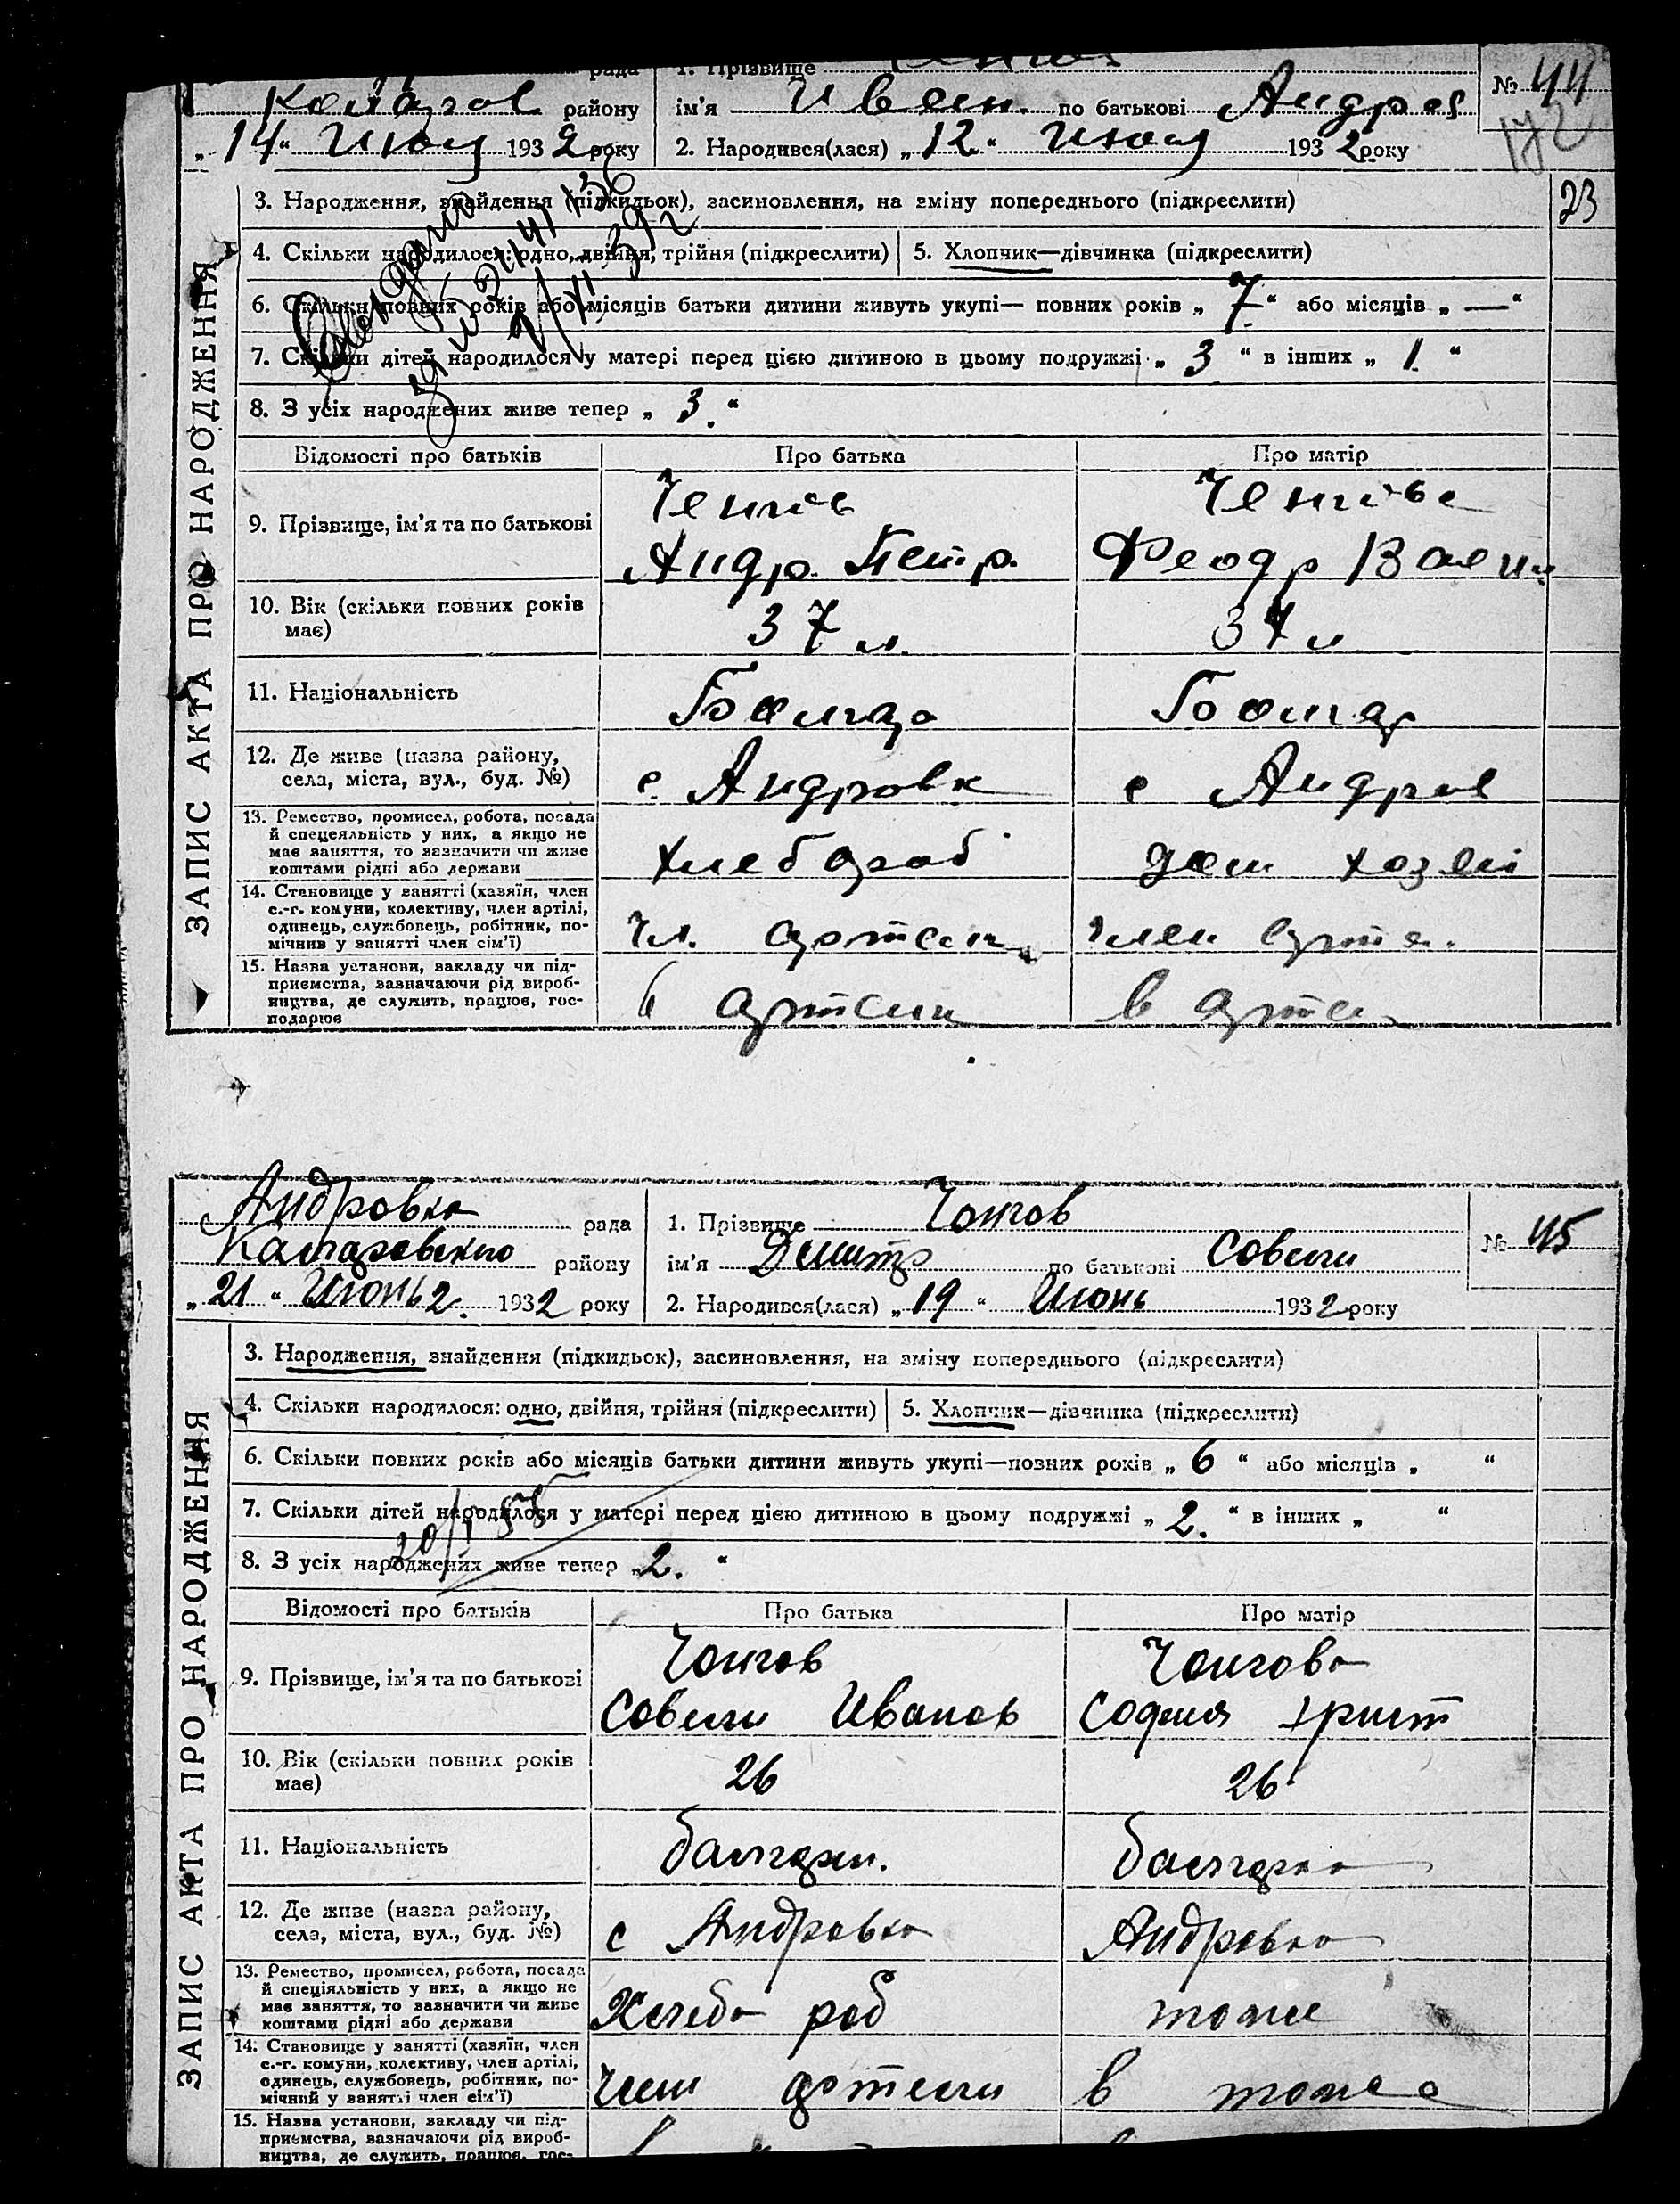 рада 1. Прізвище
району ім'я Ивен. по батькові Андрея № 44
172
„14“ Июня 1932 року 2. Народився(лася) „12“ Июня 1932 року
ЗАПИС АКТА ПРО НАРОДЖЕННЯ
3. Народження, знайдення (підкидьок), засиновлення, на зміну попереднього (підкреслити) 23
4. Скільки народилося: одно, двійня, трійня (підкреслити) 5. Хлопчик—дівчинка (підкреслити)
6. Скільки повних років або місяців батьки дитини живуть укупі— повних років „7“ або місяців „—“
7. Скільки дітей народилося у матері перед цією дитиною в цьому подружжі „3“ в інших „1“
8. З усіх народжених живе тепер „3.“
Відомості про батьків Про батька Про матір
9. Прізвище, ім'я та по батькові
Андр. Петр. Феодр
10. Вік (скільки повних років має) 37 л. 37 л
11. Національність Болгар Болгар
12. Де живе (назва району, села, міста, вул., буд. №) с. Андровк с Андров
13. Ремество, промисел, робота, посада й спецеяльність у них, а якщо не має заняття, то зазначити чи живе коштами рідні або держави хлебороб дом хозяй
14. Становище у занятті (хазяїн, член с.-г. комуни, колективу, член артілі, одинець, службовець, робітник, помічник у занятті член сім'ї) чл. артели член арте.
15. Назва установи, закладу чи підприємства, зазначаючи рід виробництва, де служить, працює, господарює в артели в арте
Андровка рада 1. Прізвище Чонгов № 45
району ім'я Дмитр по батькові Совели
„21“ Июнь 2. 1932 року 2. Народився(лася) „19“ Июнь 1932 року
ЗАПИС АКТА ПРО НАРОДЖЕННЯ
3. Народження, знайдення (підкидьок), засиновлення, на зміну попереднього (підкреслити)
4. Скільки народилося: одно, двійня, трійня (підкреслити) 5. Хлопчик—дівчинка (підкреслити)
6. Скільки повних років або місяців батьки дитини живуть укупі—повних років „6“ або місяців „ “
7. Скільки дітей народилося у матері перед цією дитиною в цьому подружжі „2.“ в інших „ “
8. З усіх народжених живе тепер „2.“
Відомості про батьків Про батька Про матір
9. Прізвище, ім'я та по батькові Чонгов Чонгова
Совели Иванов София Христ
10. Вік (скільки повних років має) 26 26
11. Національність болгарин. болгарка
12. Де живе (назва району, села, міста, вул., буд. №) с Андровка Андровка
13. Ремество, промисел, робота, посада й спеціяльність у них, а якщо не має заняття, то зазначити чи живе коштами рідні або держави Хлебо роб тоже
14. Становище у занятті (хазяїн, член с.-г. комуни, колективу, член артілі, одинець, службовець, робітник, помічний у занятті член сім'ї) член артели в тоже
15. Назва установи, закладу чи підприємства, зазначаючи рід виробництва, де служить, працює, гос-